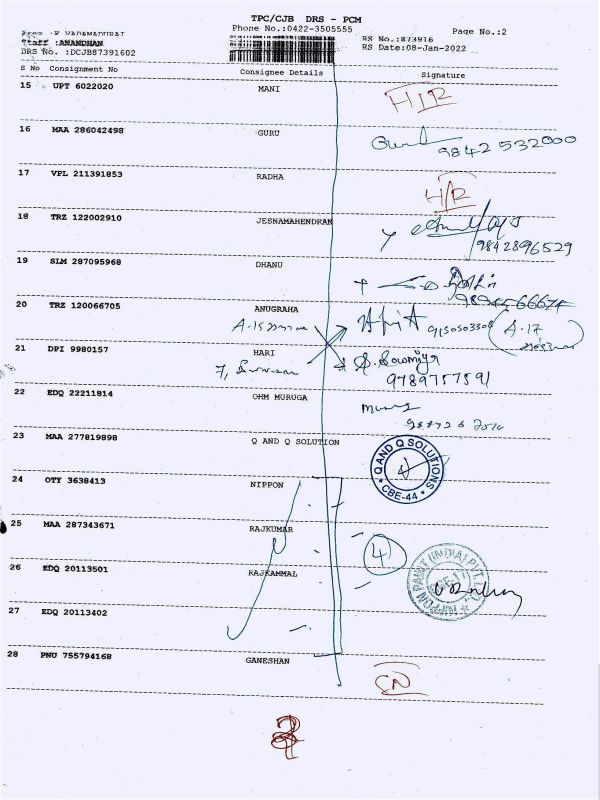 TPC/CJB DRS - PCM
Phone No.:0422-3505555
Page No.:2
Staff :ANANDHAN
RS No.:873916
DRS No. :DCJB87391602
RS Date:08-Jan-2022
S No Consignment No Consignee Details Signature
15 UPT 6022020 MANI H/R
16 MAA 286042498 GURU
9842532000
17 VPL 211391853 RADHA H/R
18 TRZ 122002910 JESNAMAHENDRAN
9842896529
19 SLM 287095968 DHANU
20 TRZ 120066705 ANUGRAHA
9150503308 A-17
21 DPI 9980157 HARI
S. Sowmiya
9789757591
22 EDQ 22211814 OHM MURUGA
23 MAA 277819898 Q AND Q SOLUTION
Q AND Q SOLUTIONS
CBE-44
24 OTY 3638413 NIPPON
25 MAA 287343671 RAJKUMAR
4
26 EDQ 20113501 RAJKAMMAL
NIPPON PAINT (INDIA) PVT. LTD.
27 EDQ 20113402
28 PNU 755794168 GANESHAN
CN